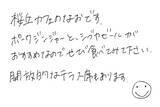 桜丘カフェのなおです。
ポークジンジャーと、シブヤビールが
おすすめなのでぜひ食べてみて下さい。
開放的なテラス席もあります。